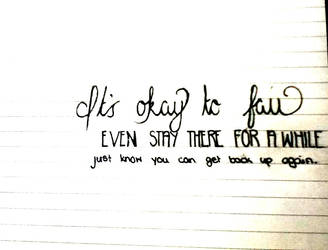 It's okay to fall
EVEN STAY THERE FOR A WHILE
just know you can get back up again.